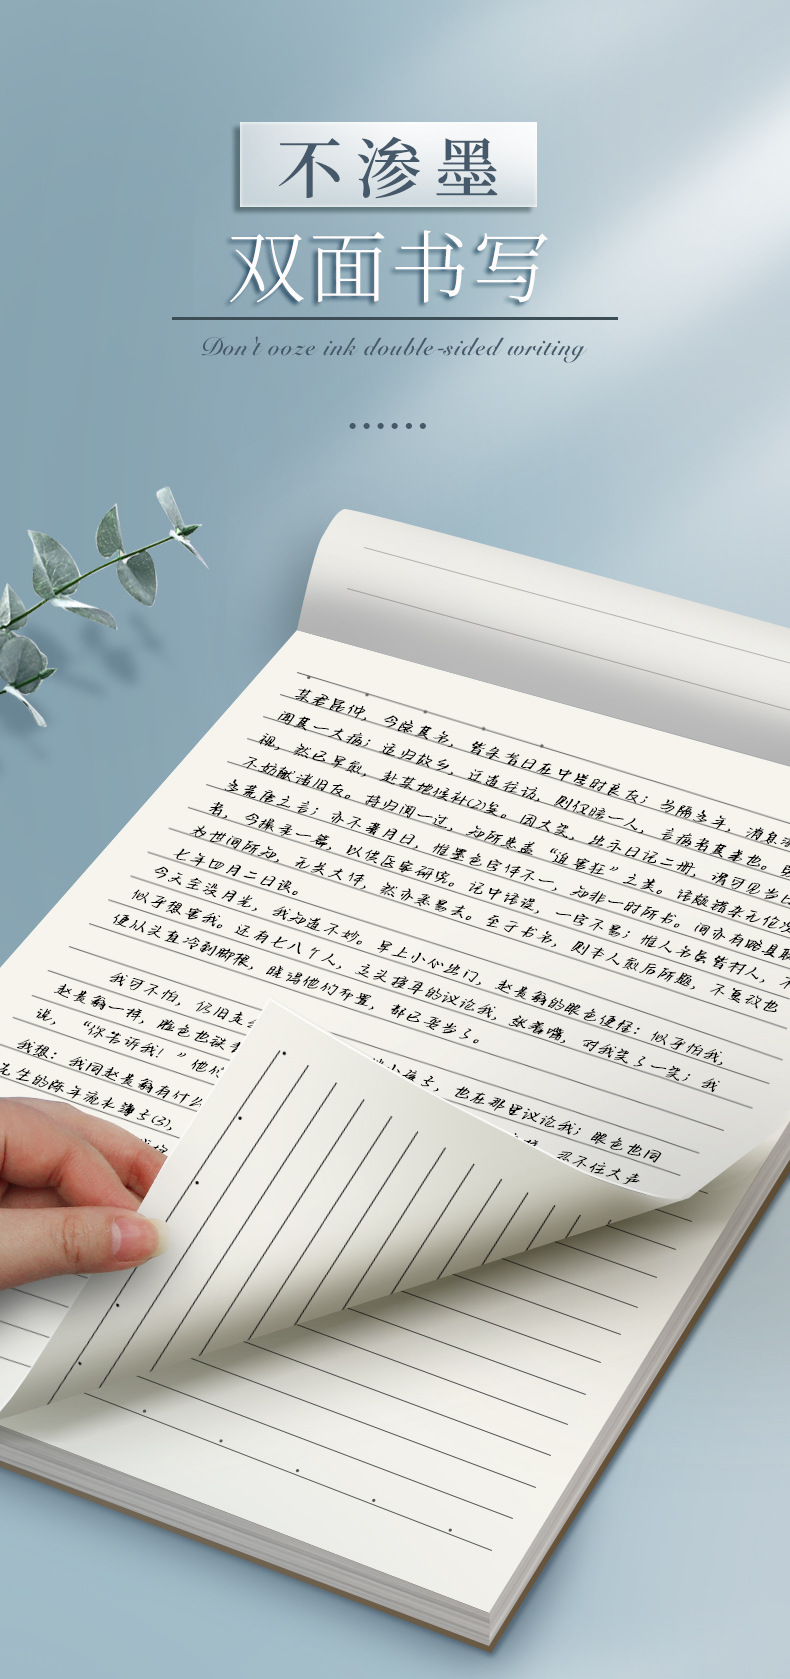 不渗墨
双面书写
Don't ooze ink double-sided writing
某君昆仲，今隐其名，皆余昔日在中学时良友；分隔多年，消息
闻其一大病；适归故乡，迂道往访，则仅晤一人，言病者其弟也。
视，然已早愈，赴某地候补(2)矣。因大笑，出示日记二册，谓可见当日
不妨献诸旧友。持归阅一过，知所患盖“迫害狂”之类。语颇错杂无伦次
多荒唐之言；亦不著月日，惟墨色字体不一，知非一时所书。间亦有略具联
者，今撮录一篇，以供医家研究。记中语误，一字不易；惟人名虽皆村人，不
为世间所知，无关大体，然亦悉易去。至于书名，则本人愈后所题，不复改也
七年四月二日识。
今天全没月光，我知道不妙。早上小心出门，赵贵翁的眼色便怪：似乎怕我，
似乎想害我。还有七八个人，交头接耳的议论我，张着嘴，对我笑了一笑；我
便从头直冷到脚根，晓得他们布置，都已妥当了。
我可不怕，仍旧走
小孩子，也在那里议论我；眼色也同
赵贵翁一样，脸色也铁青
忍不住大声
说，“你告诉我！”他们
我想：我同赵贵翁有什么
先生的陈年流水簿子(3)，